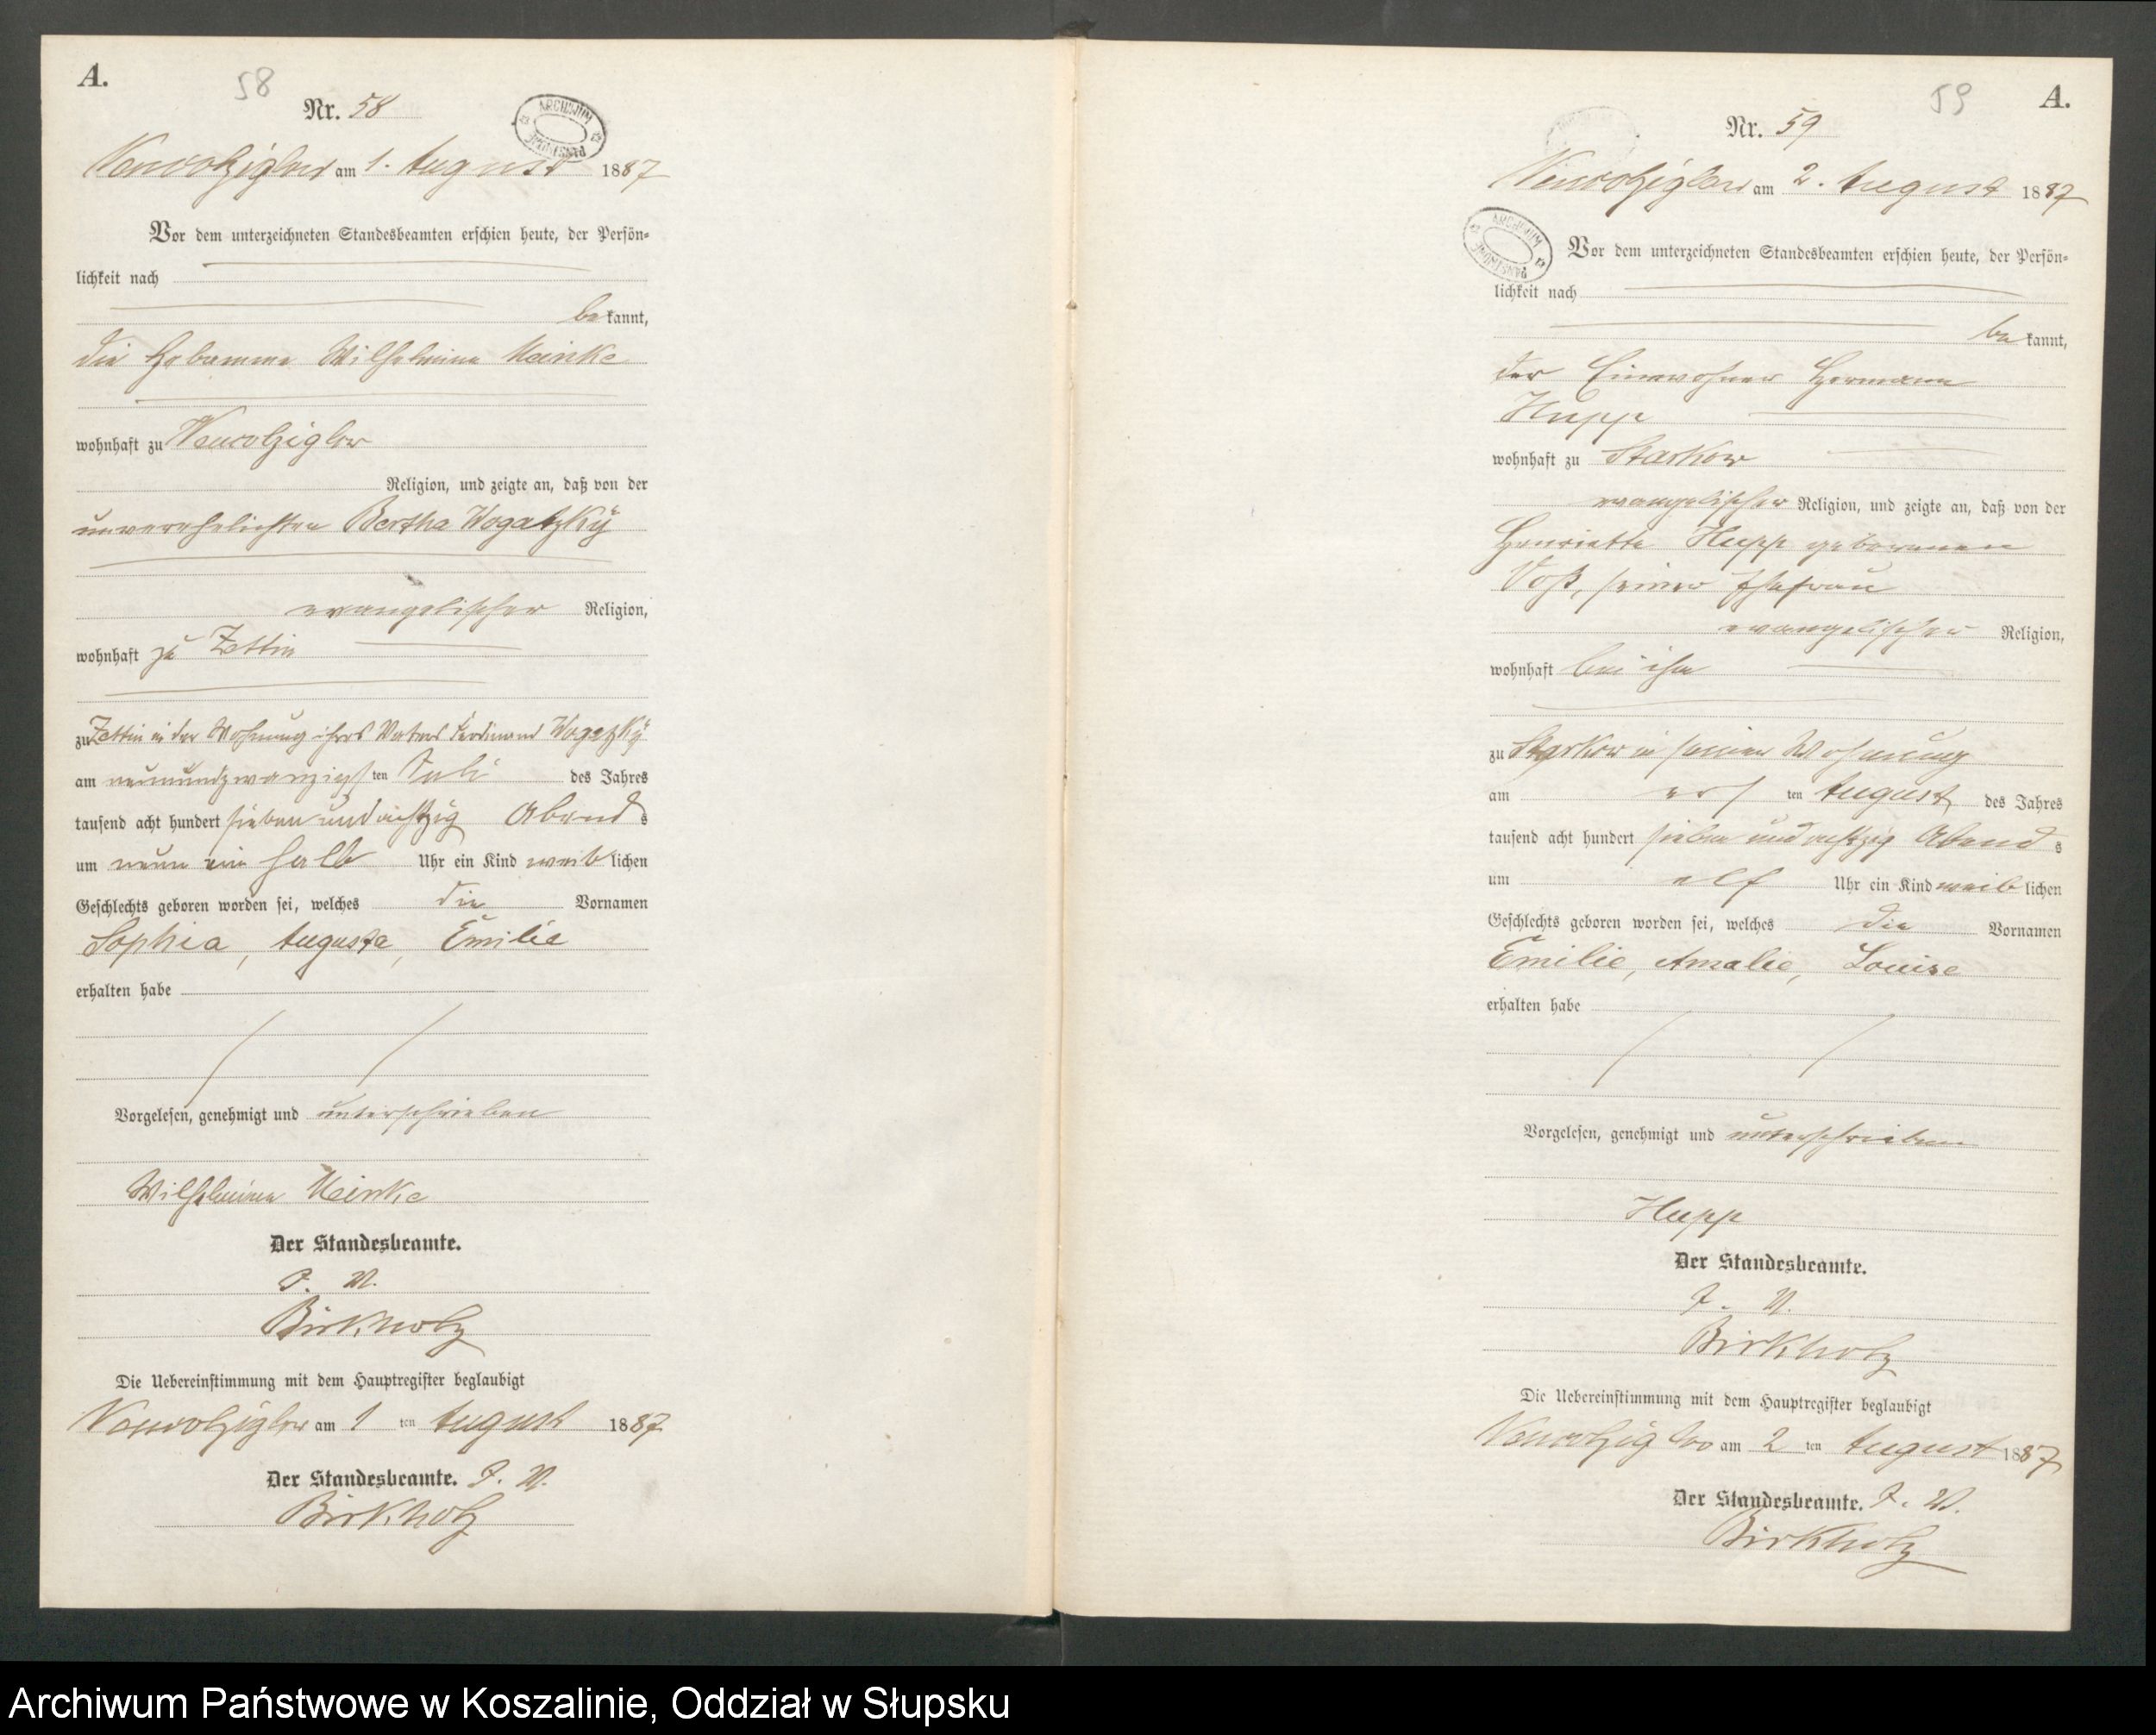 A.
58
Nr. 58
ARCHIWUM PAŃSTWOWE
Neuwolziglow am 1. August 1887
Vor dem unterzeichneten Standesbeamten erschien heute, der Persön-
lichkeit nach
bekannt,
die Hebamme Wilhelmine Meinke
wohnhaft zu Neuwolziglow
Religion, und zeigte an, daß von der
unverehelichten Bertha Wogatzky
evangelischer Religion,
wohnhaft zu Zettin
zu Zettin in der Wohnung ihres Vaters Ferdinand Wogatzky
am neunundzwanzigsten Juli des Jahres
tausend acht hundert sieben und achtzig Abends
um neun ein halb Uhr ein Kind weiblichen
Geschlechts geboren worden sei, welches die Vornamen
Sophia, Augusta, Emilie
erhalten habe
Vorgelesen, genehmigt und unterschrieben
Wilhelmine Meinke
Der Standesbeamte.
J. V.
Birkholz
Die Uebereinstimmung mit dem Hauptregister beglaubigt
Neuwolziglow am 1 ten August 1887
Der Standesbeamte. J. V.
Birkholz
59
A.
Nr. 59
Neuwolziglow am 2. August 1887
ARCHIWUM PAŃSTWOWE
Vor dem unterzeichneten Standesbeamten erschien heute, der Persön-
lichkeit nach
bekannt,
der Einwohner Hermann
Hupp
wohnhaft zu Starkow
evangelischer Religion, und zeigte an, daß von der
Henriette Hupp geborenen
Voß, seiner Ehefrau
evangelischer Religion,
wohnhaft bei ihm
zu Starkow in seiner Wohnung
am ersten August des Jahres
tausend acht hundert sieben und achtzig Abends
um elf Uhr ein Kind weiblichen
Geschlechts geboren worden sei, welches die Vornamen
Emilie, Amalie, Louise
erhalten habe
Vorgelesen, genehmigt und unterschrieben
Hupp
Der Standesbeamte.
J. V.
Birkholz
Die Uebereinstimmung mit dem Hauptregister beglaubigt
Neuwolziglow am 2 ten August 1887
Der Standesbeamte. J. V.
Birkholz
Archiwum Państwowe w Koszalinie, Oddział w Słupsku